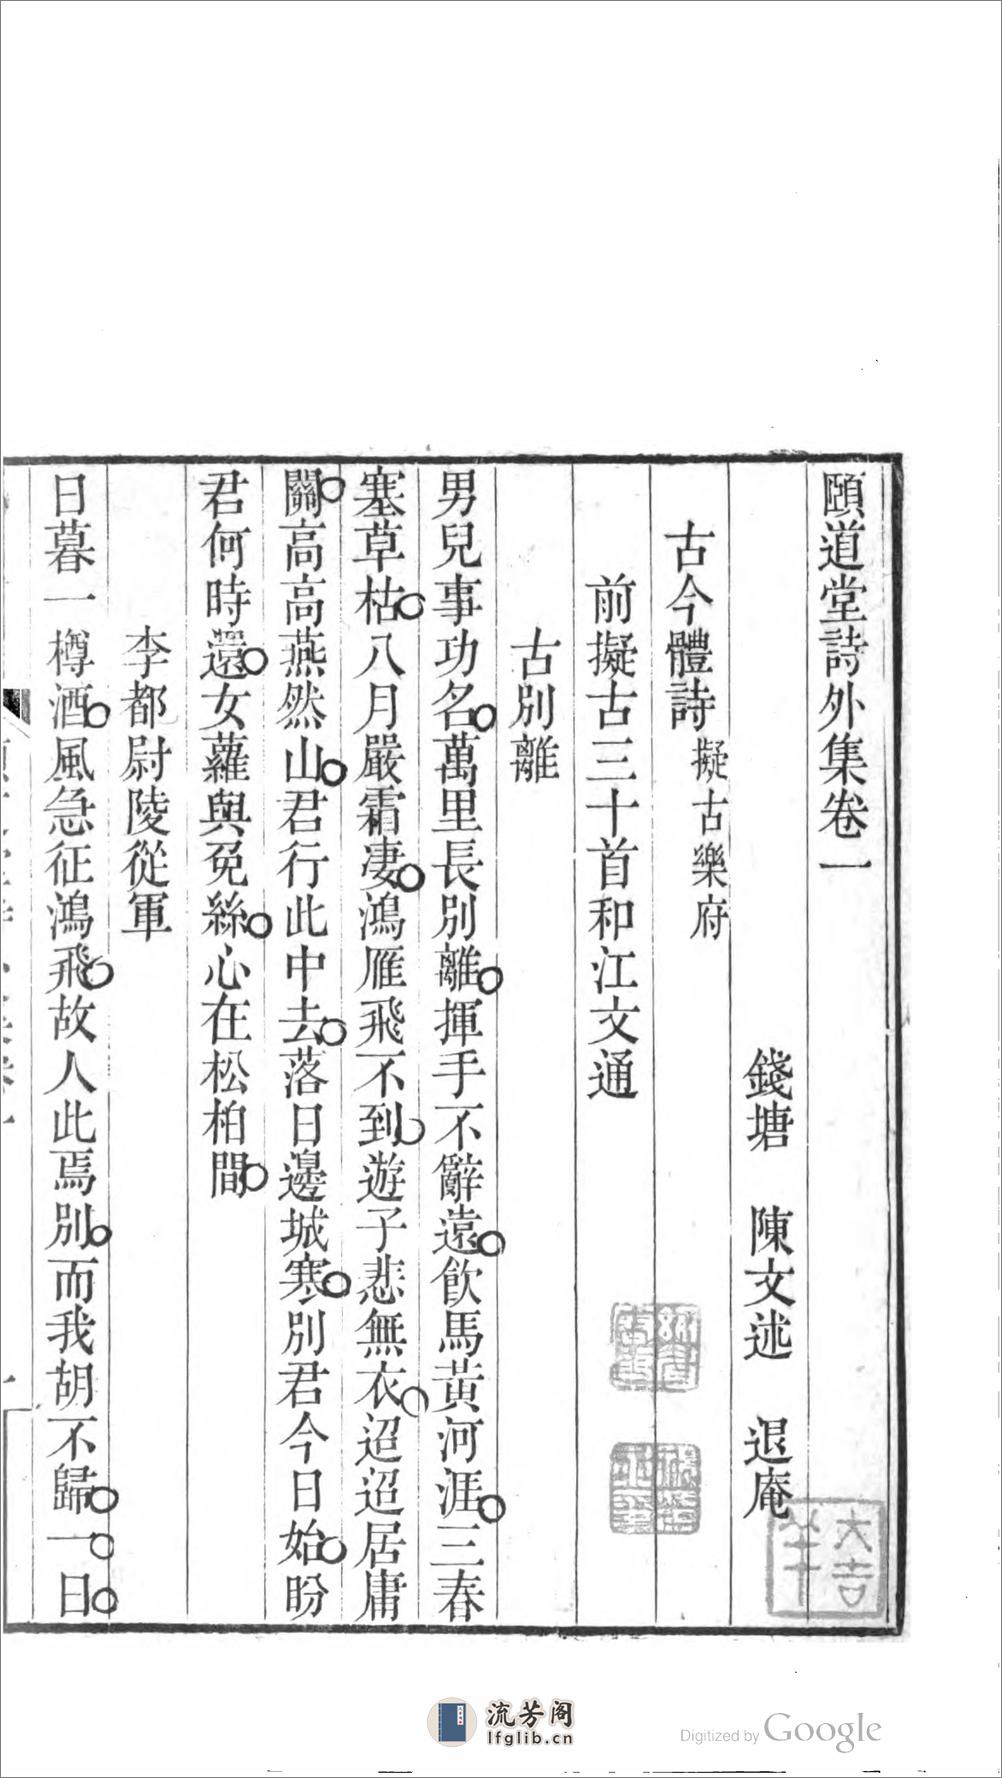 頤道堂詩外集卷一
錢塘　陳文述　退庵
古今體詩 擬古樂府
前擬古三十首和江文通
古別離
男兒事功名萬里長別離揮手不辭遠飲馬黃河涯三春
塞草枯八月嚴霜凄鴻雁飛不到遊子悲無衣迢迢居庸
關高高燕然山君行此中去落日邊城寒別君今日始盼
君何時還女蘿與兔絲心在松柏間
李都尉陵從軍
日暮一樽酒風急征鴻飛故人此焉別而我胡不歸一日
大吉
流芳阁
lfglib.cn
Digitized by Google